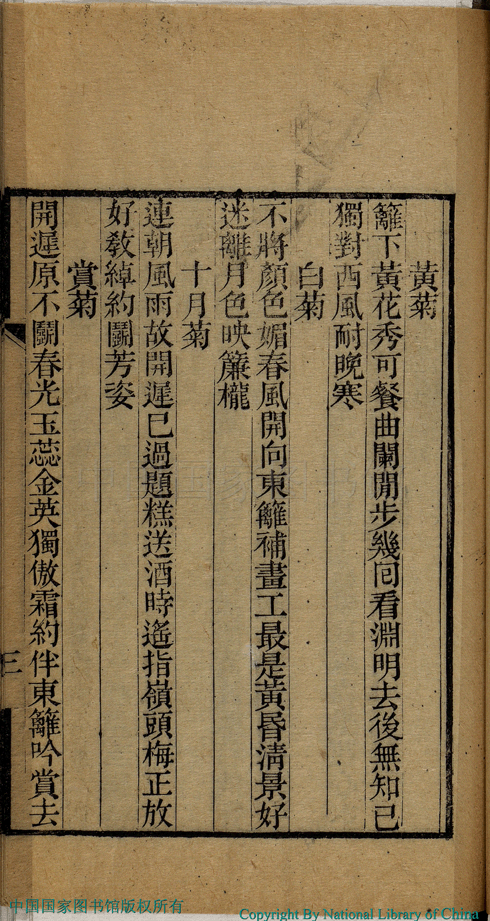 黃菊
籬下黃花秀可餐曲闌閒步幾囘看淵明去後無知己
獨對西風耐晚寒
白菊
不將顏色媚春風開向東籬補畫工最是黃昏淸景好
迷離月色映簾櫳
十月菊
連朝風雨故開遲已過題糕送酒時遙指嶺頭梅正放
好敎綽約鬭芳姿
賞菊
開遲原不鬭春光玉蕊金英獨傲霜約伴東籬吟賞去
三
中国国家图书馆版权所有
Copyright By National Library of China